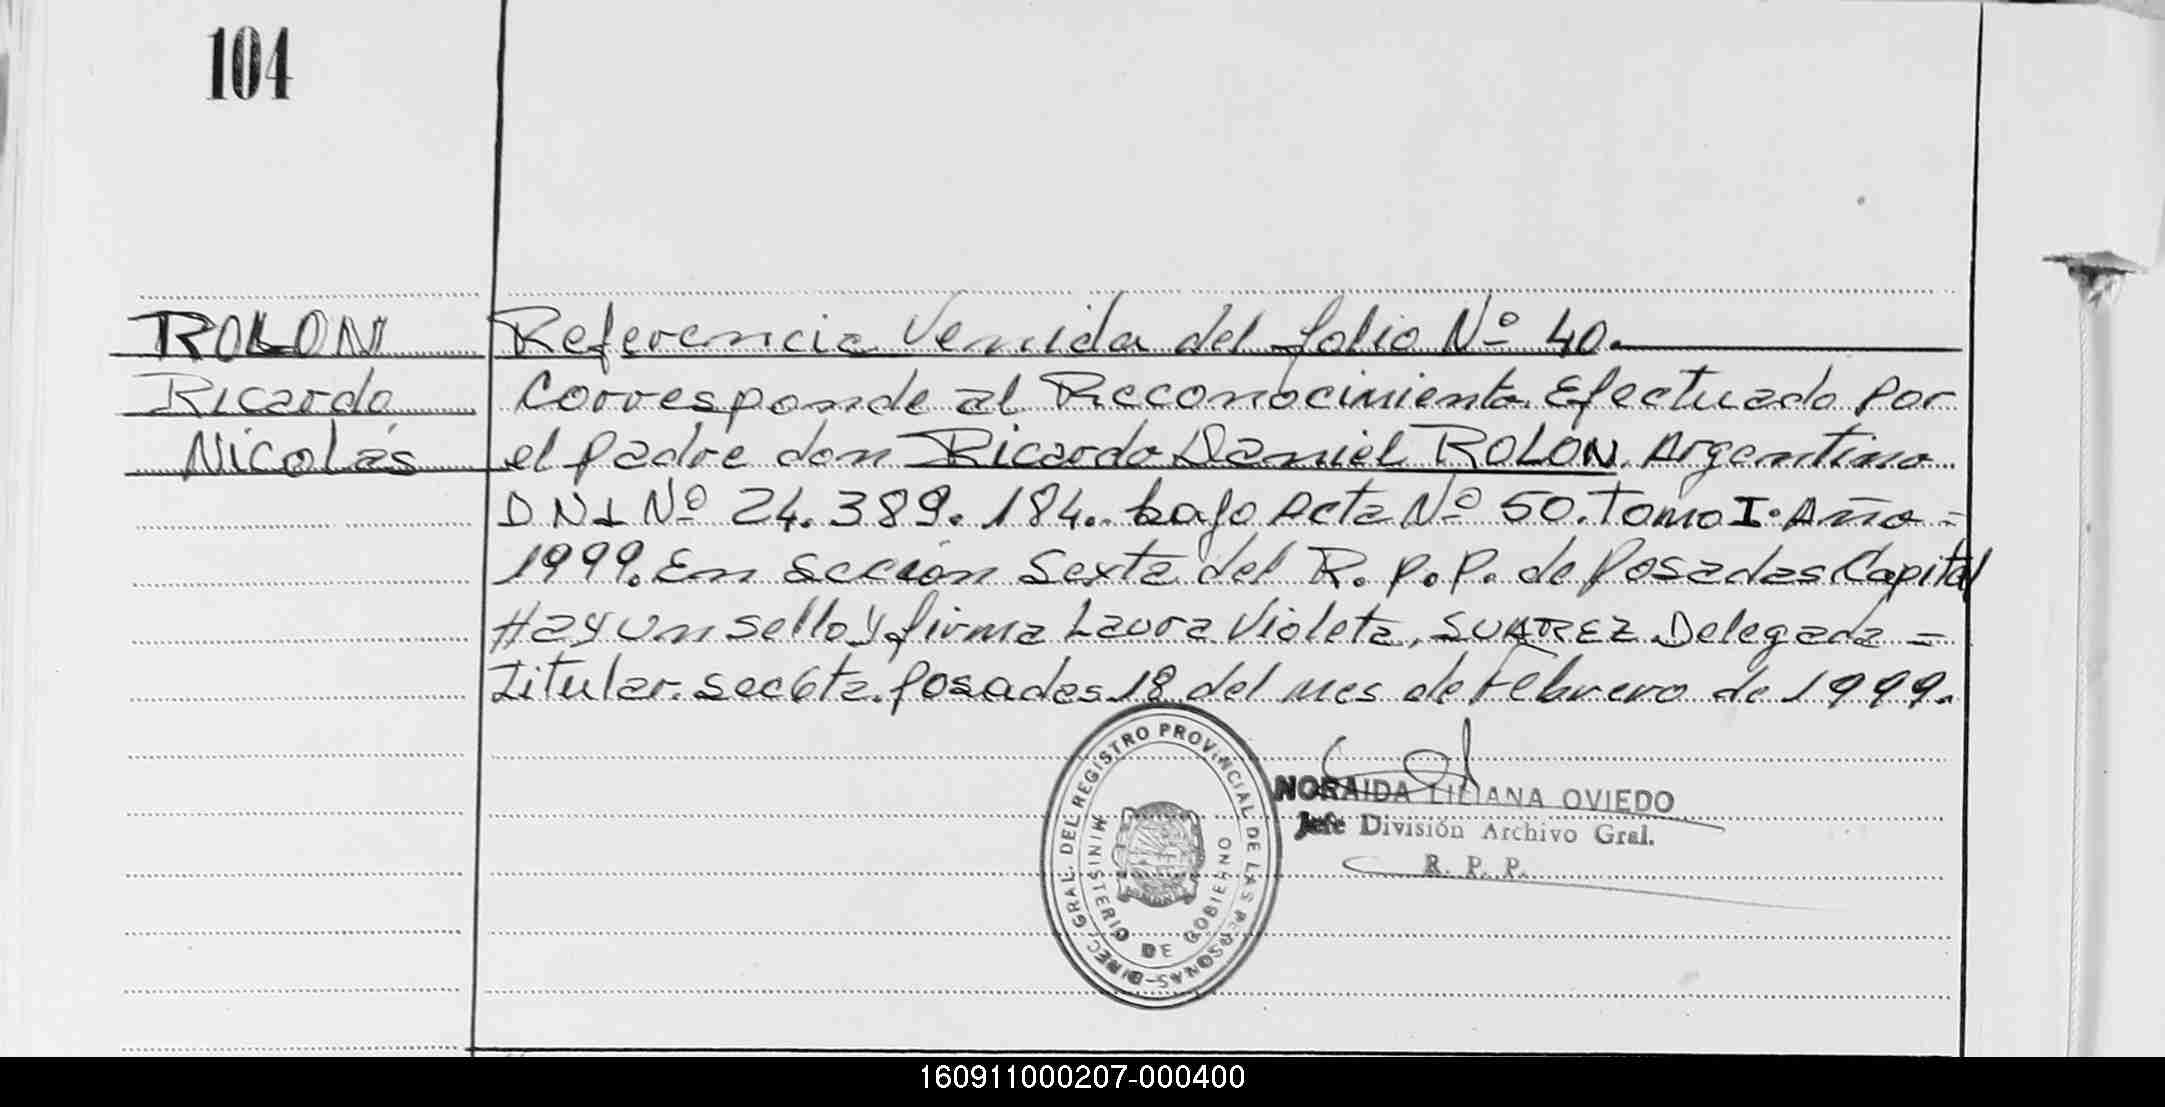 104
ROLON
Ricardo
Nicolás
Referencia Venida del folio Nº 40.
Corresponde al Reconocimiento Efectuado Por
el padre don Ricardo Daniel ROLON. Argentino
DNI Nº 24.389.184.. bajo Acta Nº 50. Tomo I. Año =
1999. En Sección Sexta del R.P.P. de Posadas Capital
Hay un sello y firma Laura Violeta, SUAREZ Delegada =
Titular. Sec 6ta. Posadas 18 del mes de Febrero de 1999.
DIREC. GRAL. DEL REGISTRO PROVINCIAL DE LAS PERSONAS-
MINISTERIO DE GOBIERNO
NORAIDA LILIANA OVIEDO
Jefe División Archivo Gral.
R. P. P.
160911000207-000400